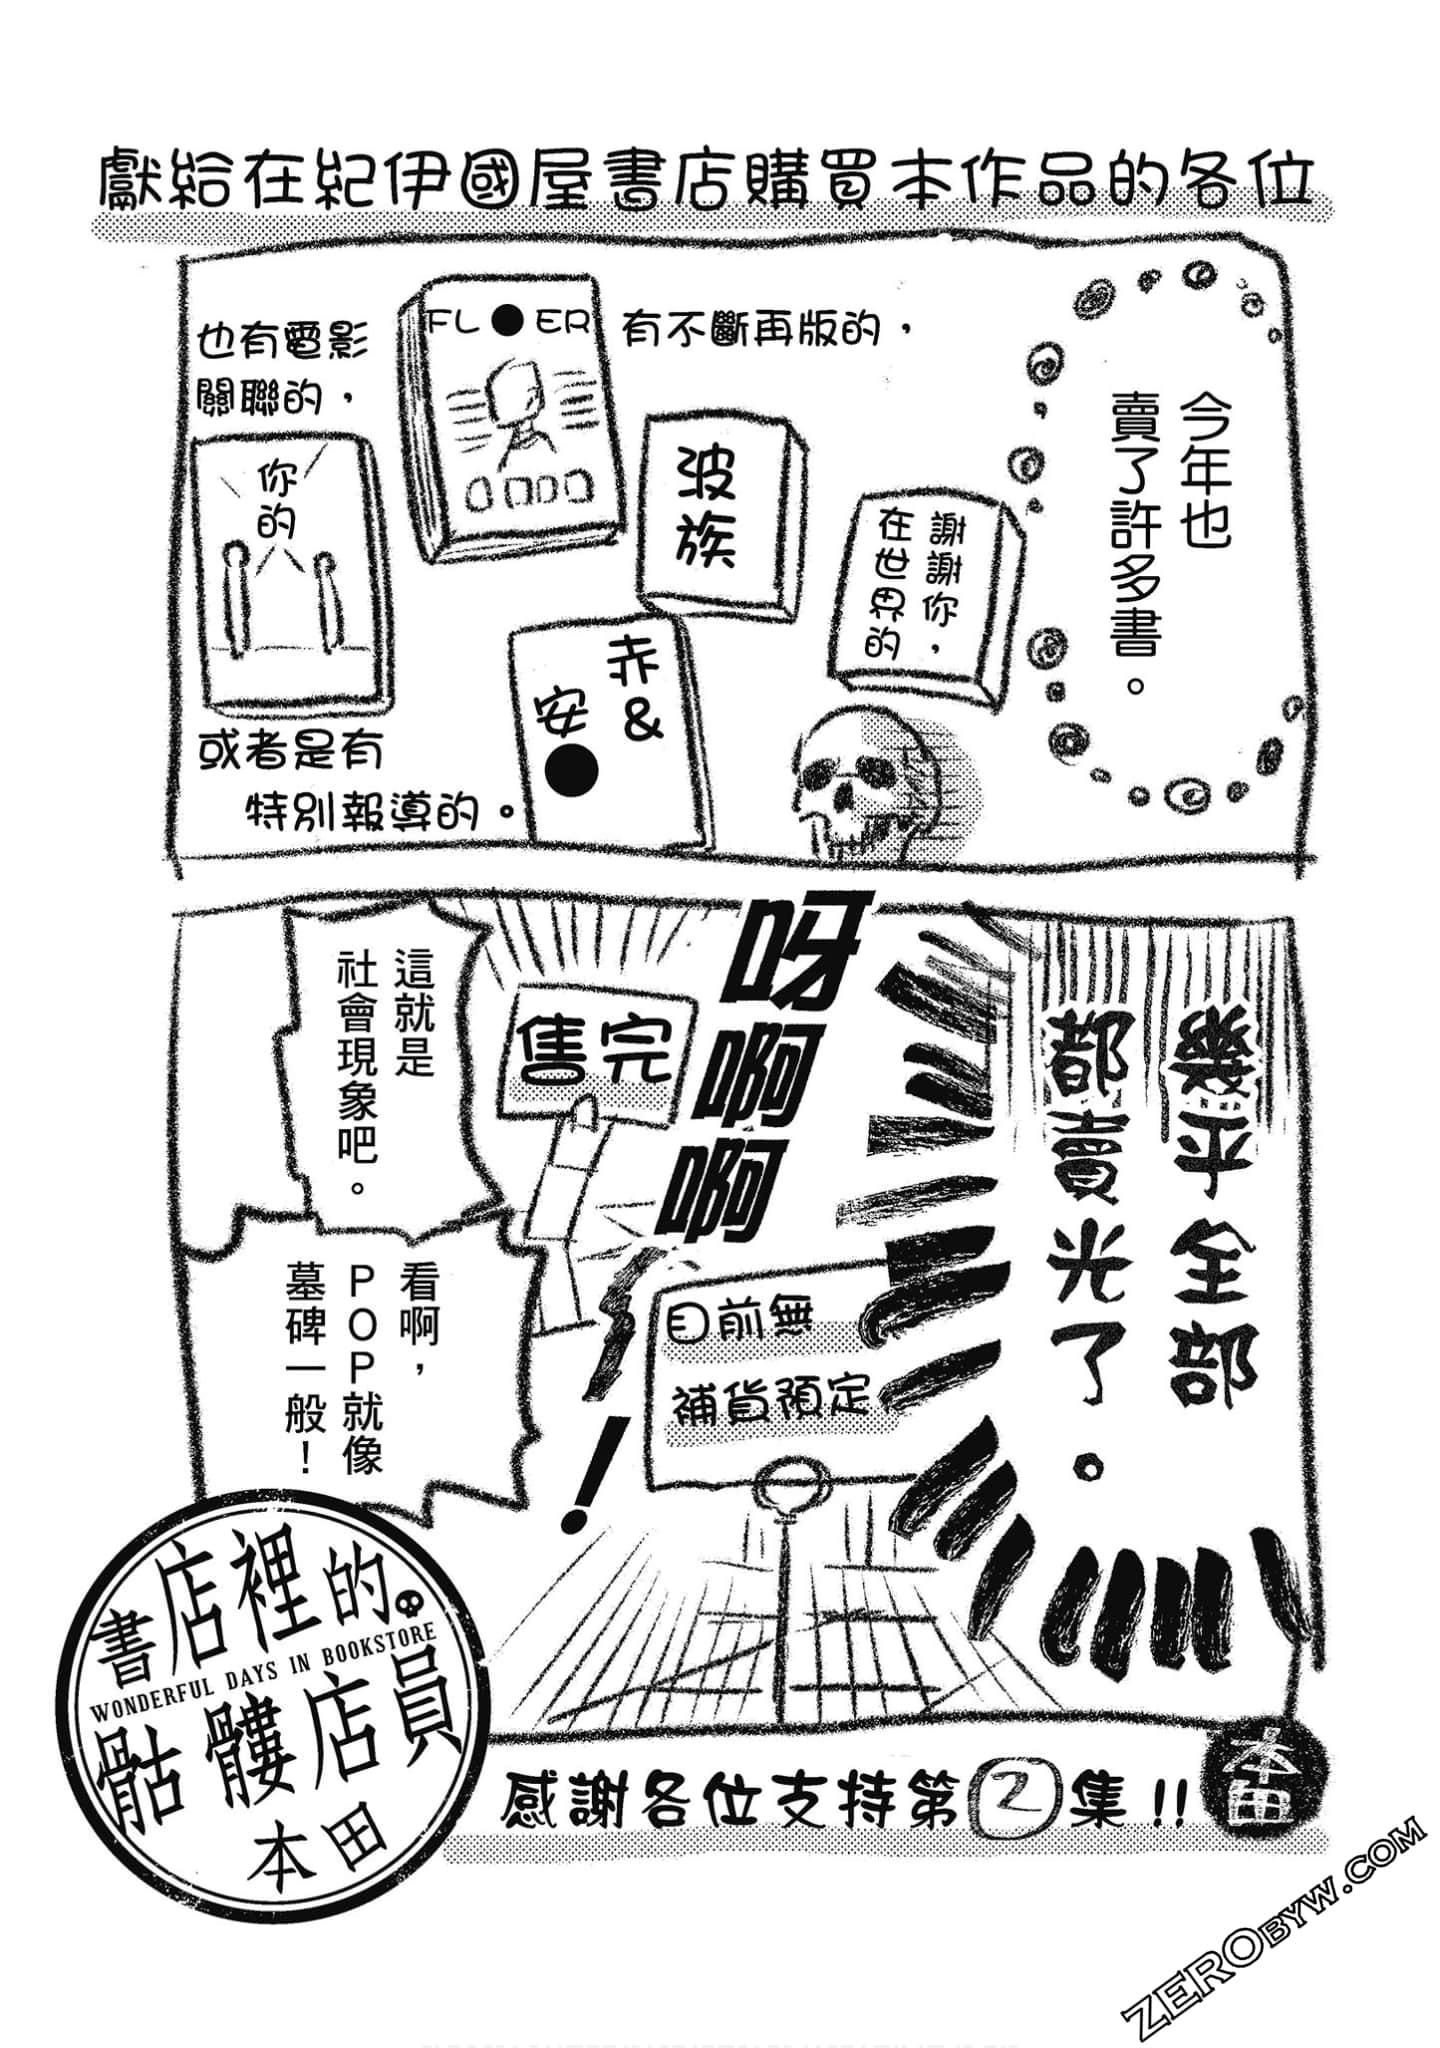 獻給在紀伊國屋書店購買本作品的各位
今年也
賣了許多書。
有不斷再版的，
FL●ER
也有電影
關聯的，
你的
波族
謝謝你，
在世界的
赤&
安●
或者是有
特別報導的。
幾乎全部
都賣光了。
呀啊啊
！
售完
目前無
補貨預定
這就是
社會現象吧。
看啊，
POP就像
墓碑一般！
書店裡的
WONDERFUL DAYS IN BOOKSTORE
骷髏店員
本田
感謝各位支持第2集!!
本田
ZEROBYW.COM